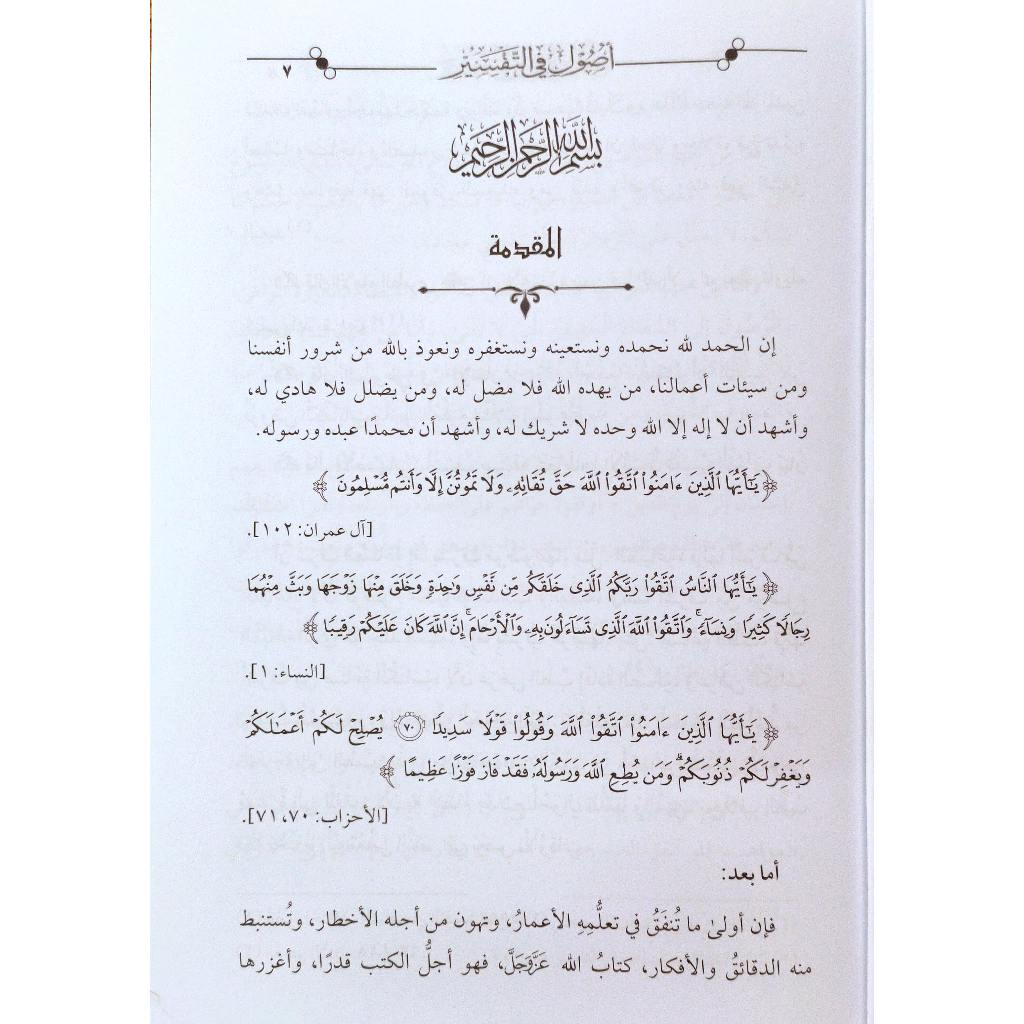 أصول في التفسير
٧
بسم الله الرحمن الرحيم
المقدمة
إن الحمد لله نحمده ونستعينه ونستغفره ونعوذ بالله من شرور أنفسنا
ومن سيئات أعمالنا، من يهده الله فلا مضل له، ومن يضلل فلا هادي له،
وأشهد أن لا إله إلا الله وحده لا شريك له، وأشهد أن محمدًا عبده ورسوله.
﴿يَٰٓأَيُّهَا ٱلَّذِينَ ءَامَنُوا۟ ٱتَّقُوا۟ ٱللَّهَ حَقَّ تُقَاتِهِۦ وَلَا تَمُوتُنَّ إِلَّا وَأَنتُم مُّسْلِمُونَ﴾
[آل عمران: ١٠٢].
﴿يَٰٓأَيُّهَا ٱلنَّاسُ ٱتَّقُوا۟ رَبَّكُمُ ٱلَّذِى خَلَقَكُم مِّن نَّفْسٍ وَٰحِدَةٍ وَخَلَقَ مِنْهَا زَوْجَهَا وَبَثَّ مِنْهُمَا
رِجَالًا كَثِيرًا وَنِسَآءً ۚ وَٱتَّقُوا۟ ٱللَّهَ ٱلَّذِى تَسَآءَلُونَ بِهِۦ وَٱلْأَرْحَامَ ۚ إِنَّ ٱللَّهَ كَانَ عَلَيْكُمْ رَقِيبًا﴾
[النساء: ١].
﴿يَٰٓأَيُّهَا ٱلَّذِينَ ءَامَنُوا۟ ٱتَّقُوا۟ ٱللَّهَ وَقُولُوا۟ قَوْلًا سَدِيدًا ٧٠ يُصْلِحْ لَكُمْ أَعْمَٰلَكُمْ
وَيَغْفِرْ لَكُمْ ذُنُوبَكُمْ ۗ وَمَن يُطِعِ ٱللَّهَ وَرَسُولَهُۥ فَقَدْ فَازَ فَوْزًا عَظِيمًا﴾
[الأحزاب: ٧٠، ٧١].
أما بعد:
فإن أولىٰ ما تُنفَقُ في تعلُّمِهِ الأعمارُ، وتهون من أجله الأخطار، وتُستنبط
منه الدقائقُ والأفكار، كتابُ الله عَزَّوَجَلَّ، فهو أجلُّ الكتب قدرًا، وأغزرها